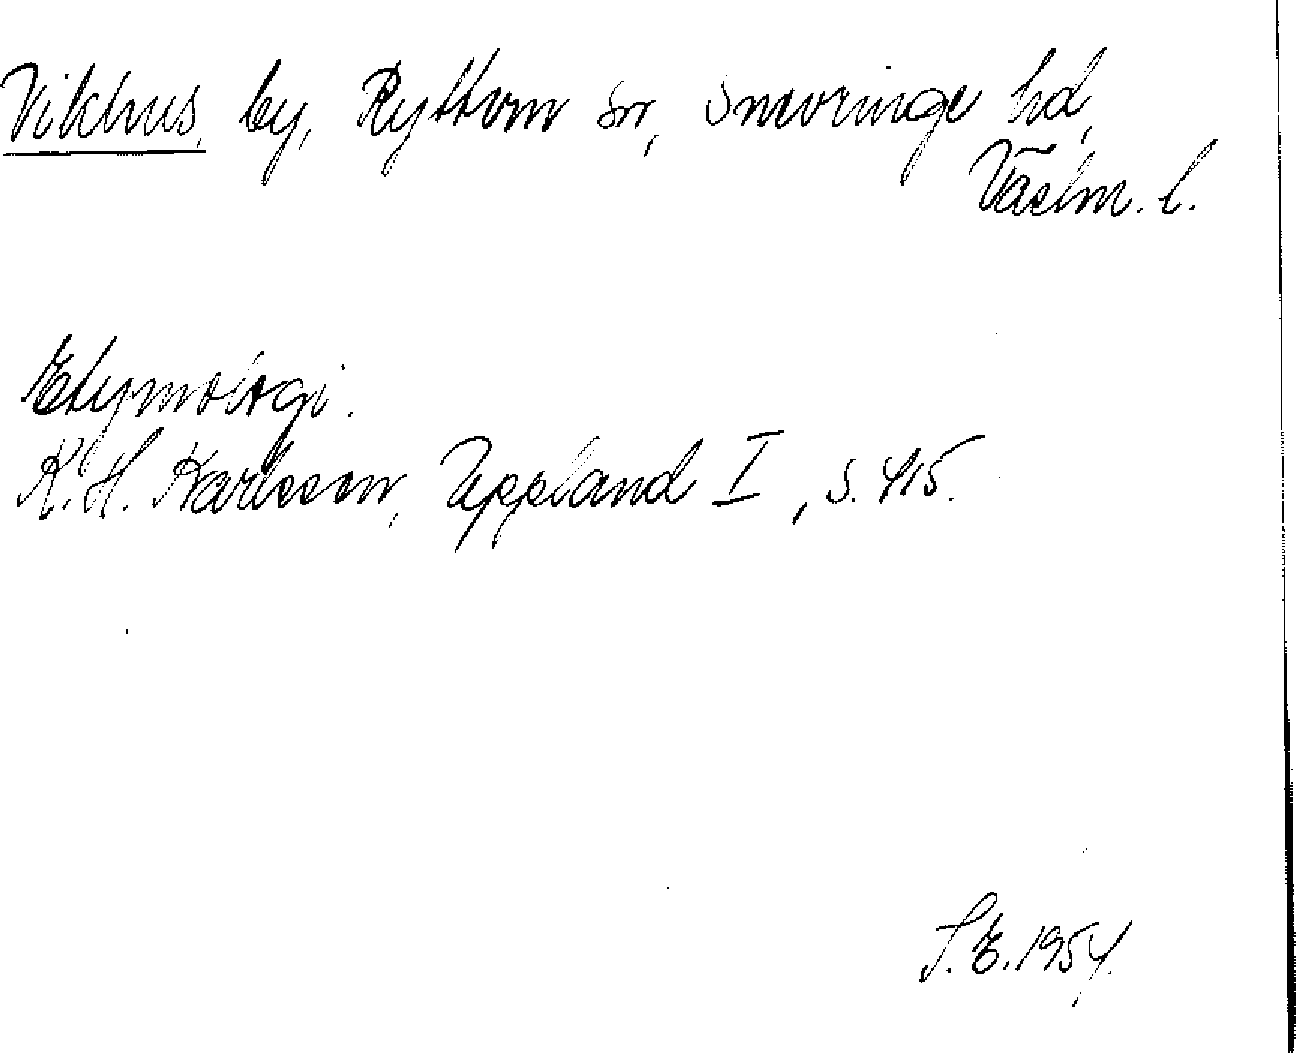 Vikhus, by, Ryttern sn, Snevringe hd,
Västm. l.
Etymologi.
K. H. Karlsson, Uppland I, s. 415.
S. E. 1954.